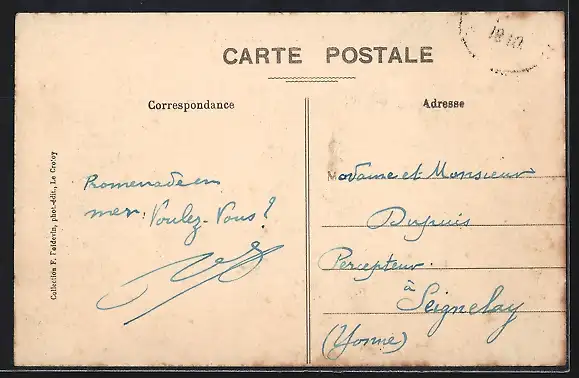 CARTE POSTALE
1910
Correspondance
Adresse
Promenade en
mer. Voulez-Vous ?
Madame et Monsieur
Dupuis
Percepteur.
à
Seignelay
(Yonne)
Collection F. Poidevin, phot.-édit., Le Crotoy